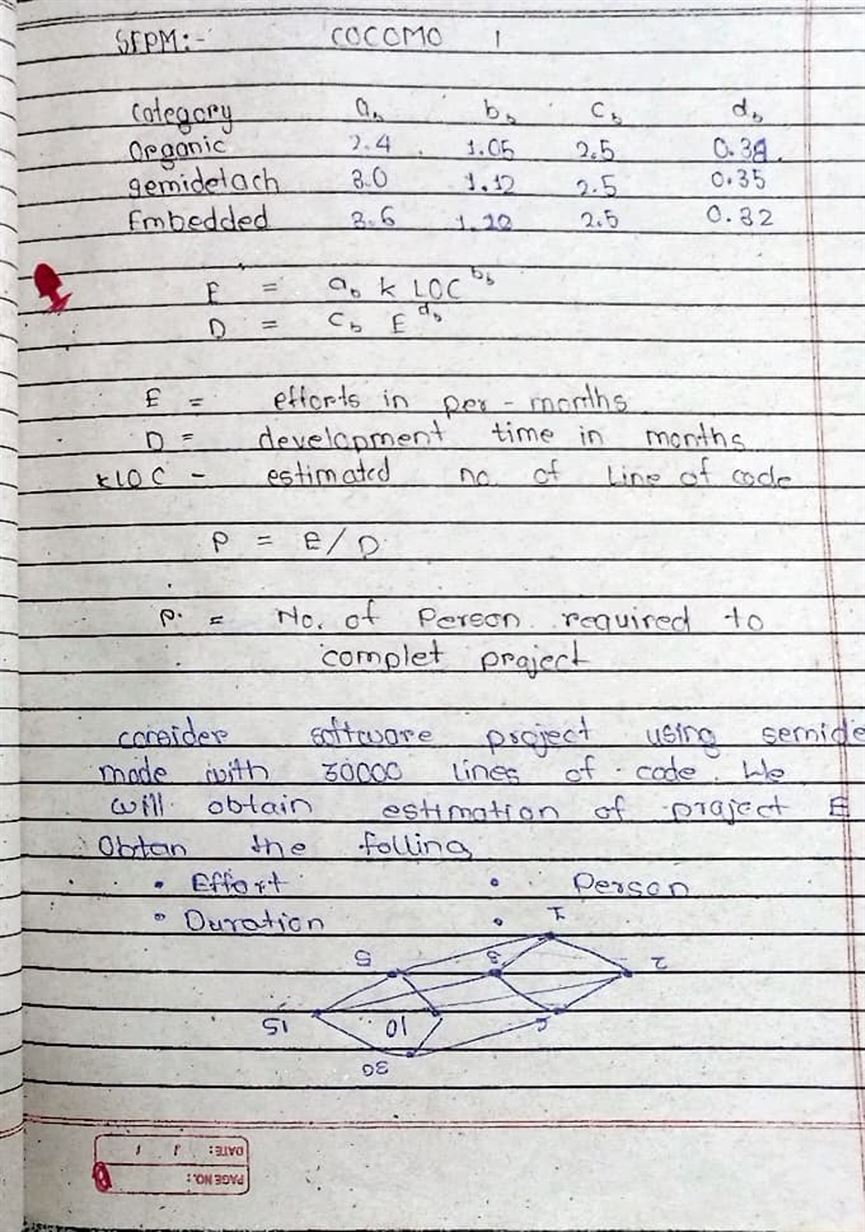 SEPM:- COCOMO 1
Category ab bb cb db
Organic 2.4 1.05 2.5 0.38
semidetach 3.0 1.12 2.5 0.35
Embedded 3.6 1.20 2.5 0.32
E = ab k LOC bb
D = cb E db
E = efforts in per - months
D = development time in months
KLOC - estimated no. of Line of code
P = E/D
P. = No. of Person required to
complet project
consider software project using semide
mode with 30000 lines of code. We
will obtain estimation of project E
Obtan the folling
• Effort • Person
• Duration •
1
5 3 2
15 10 6
30
DATE: / /
PAGE NO.: